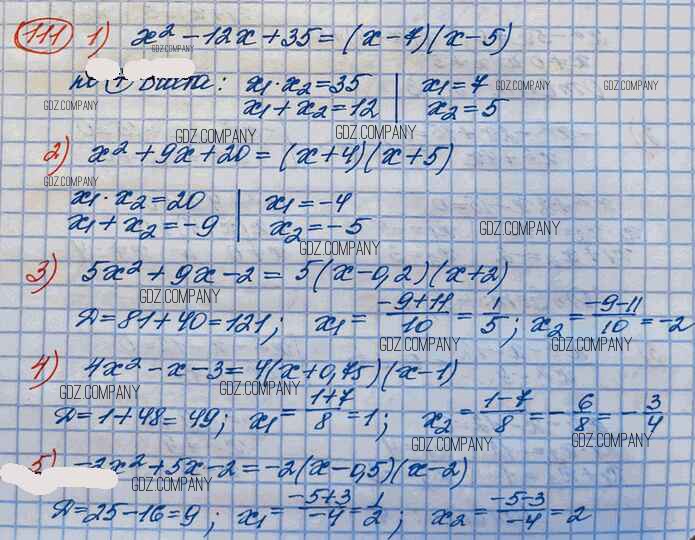 111 1) x² - 12x + 35 = (x - 7)(x - 5)
GDZ.COMPANY
по т Виета: x₁ · x₂ = 35 | x₁ = 7
GDZ.COMPANY GDZ.COMPANY
GDZ.COMPANY x₁ + x₂ = 12 | x₂ = 5
GDZ.COMPANY GDZ.COMPANY
2) x² + 9x + 20 = (x + 4)(x + 5)
GDZ.COMPANY
x₁ · x₂ = 20 | x₁ = -4
x₁ + x₂ = -9 | x₂ = -5
GDZ.COMPANY
GDZ.COMPANY
3) 5x² + 9x - 2 = 5(x - 0,2)(x + 2)
GDZ.COMPANY
D = 81 + 40 = 121; x₁ = (-9+11)/10 = 1/5; x₂ = (-9-11)/10 = -2
GDZ.COMPANY GDZ.COMPANY
4) 4x² - x - 3 = 4(x + 0,75)(x - 1)
GDZ.COMPANY GDZ.COMPANY
D = 1 + 48 = 49; x₁ = (1+7)/8 = 1; x₂ = (1-7)/8 = -6/8 = -3/4
GDZ.COMPANY GDZ.COMPANY
5) -2x² + 5x - 2 = -2(x - 0,5)(x - 2)
GDZ.COMPANY
D = 25 - 16 = 9; x₁ = (-5+3)/-4 = 1/2; x₂ = (-5-3)/-4 = 2